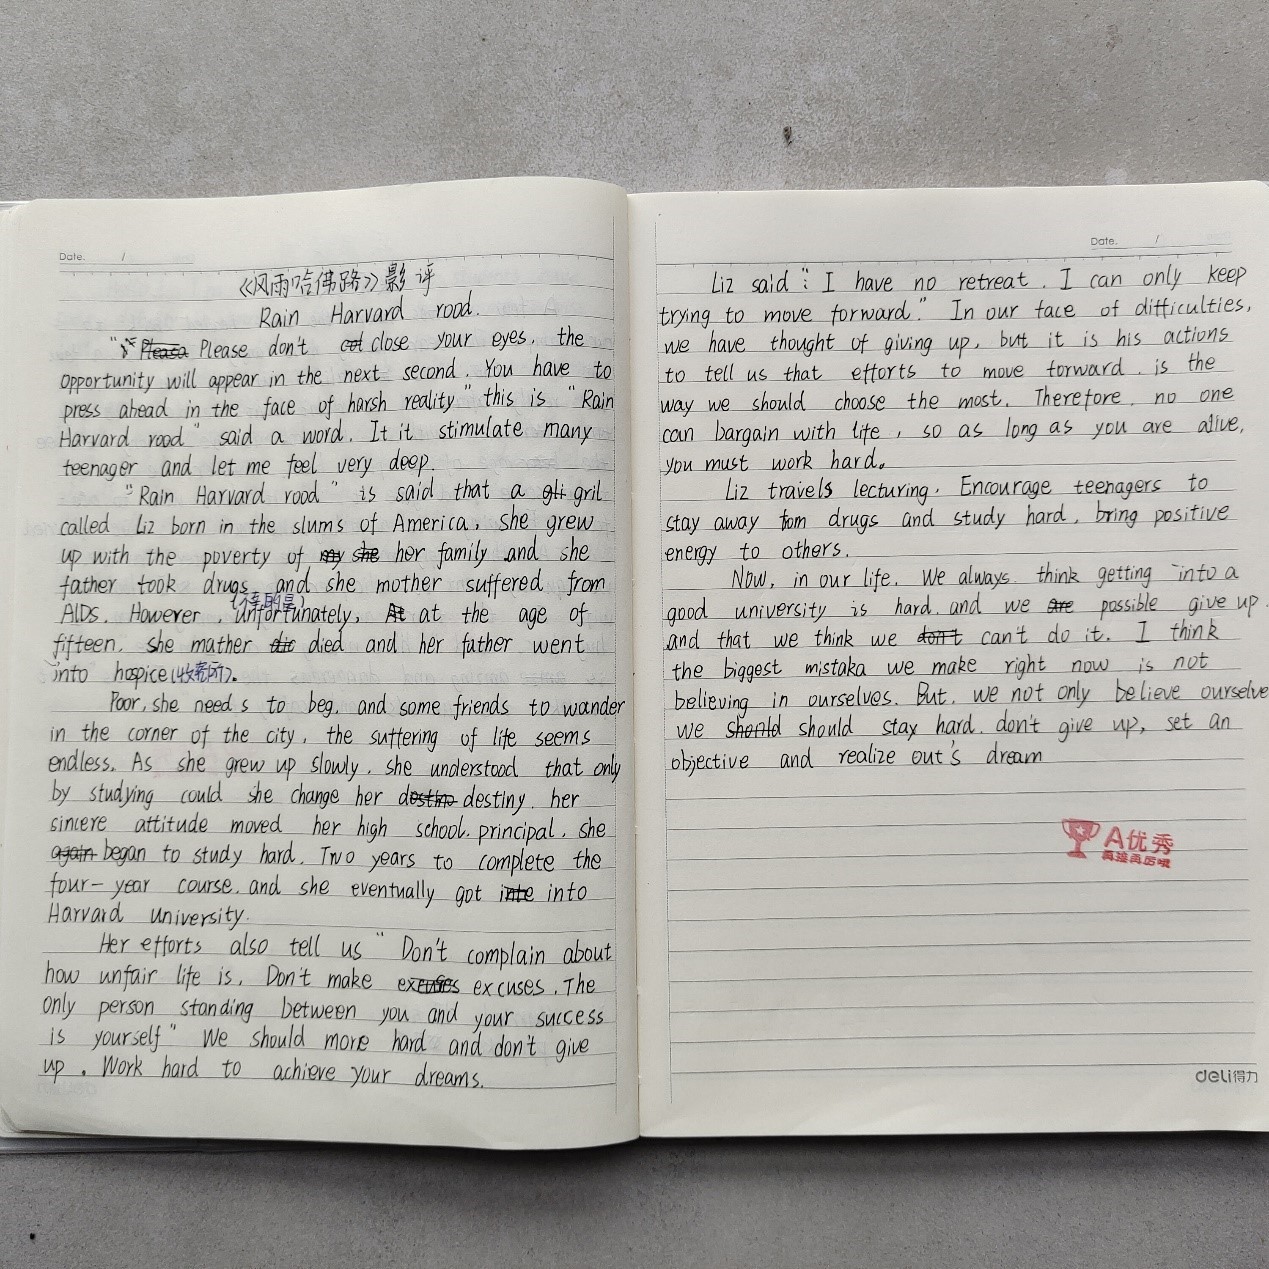 Date. /
《风雨哈佛路》影评
Rain Harvard rood.
" Please Please don't col close your eyes, the
opportunity will appear in the next second. You have to
press ahead in the face of harsh reality" this is "Rain
Harvard rood" said a word. It it stimulate many
teenager and let me feel very deep.
"Rain Harvard rood" is said that a gli gril
called Liz born in the slums of America, she grew
up with the poverty of my she her family and she
father took drugs and she mother suffered from
(不幸的是)
AIDS. However, unfortunately, At at the age of
fifteen, she mather dic died and her father went
into hospice(收容所).
Poor, she needs to beg, and some friends to wander
in the corner of the city, the suffering of life seems
endless. As she grew up slowly, she understood that only
by studying could she change her destino destiny, her
sincere attitude moved her high school, principal, she
again began to study hard. Two years to complete the
four-year course, and she eventually got inte into
Harvard university.
Her efforts also tell us "Don't complain about
how unfair life is, Don't make excuses. The
only person standing between you and your success
is yourself" We should more hard and don't give
up. Work hard to achieve your dreams.
Date. /
Liz said: I have no retreat. I can only keep
trying to move forward." In our face of difficulties,
we have thought of giving up, but it is his actions
to tell us that efforts to move forward, is the
way we should choose the most. Therefore, no one
can bargain with life, so as long as you are alive,
you must work hard.
Liz travels lecturing. Encourage teenagers to
stay away from drugs and study hard, bring positive
energy to others.
Now, in our life. We always think getting into a
good university is hard, and we are possible give up.
and that we think we don't can't do it. I think
the biggest mistaka we make right now is not
believing in ourselves. But, we not only believe ourselve
we should should stay hard, don't give up, set an
objective and realize out's dream
A优秀
再接再厉哦
deli得力